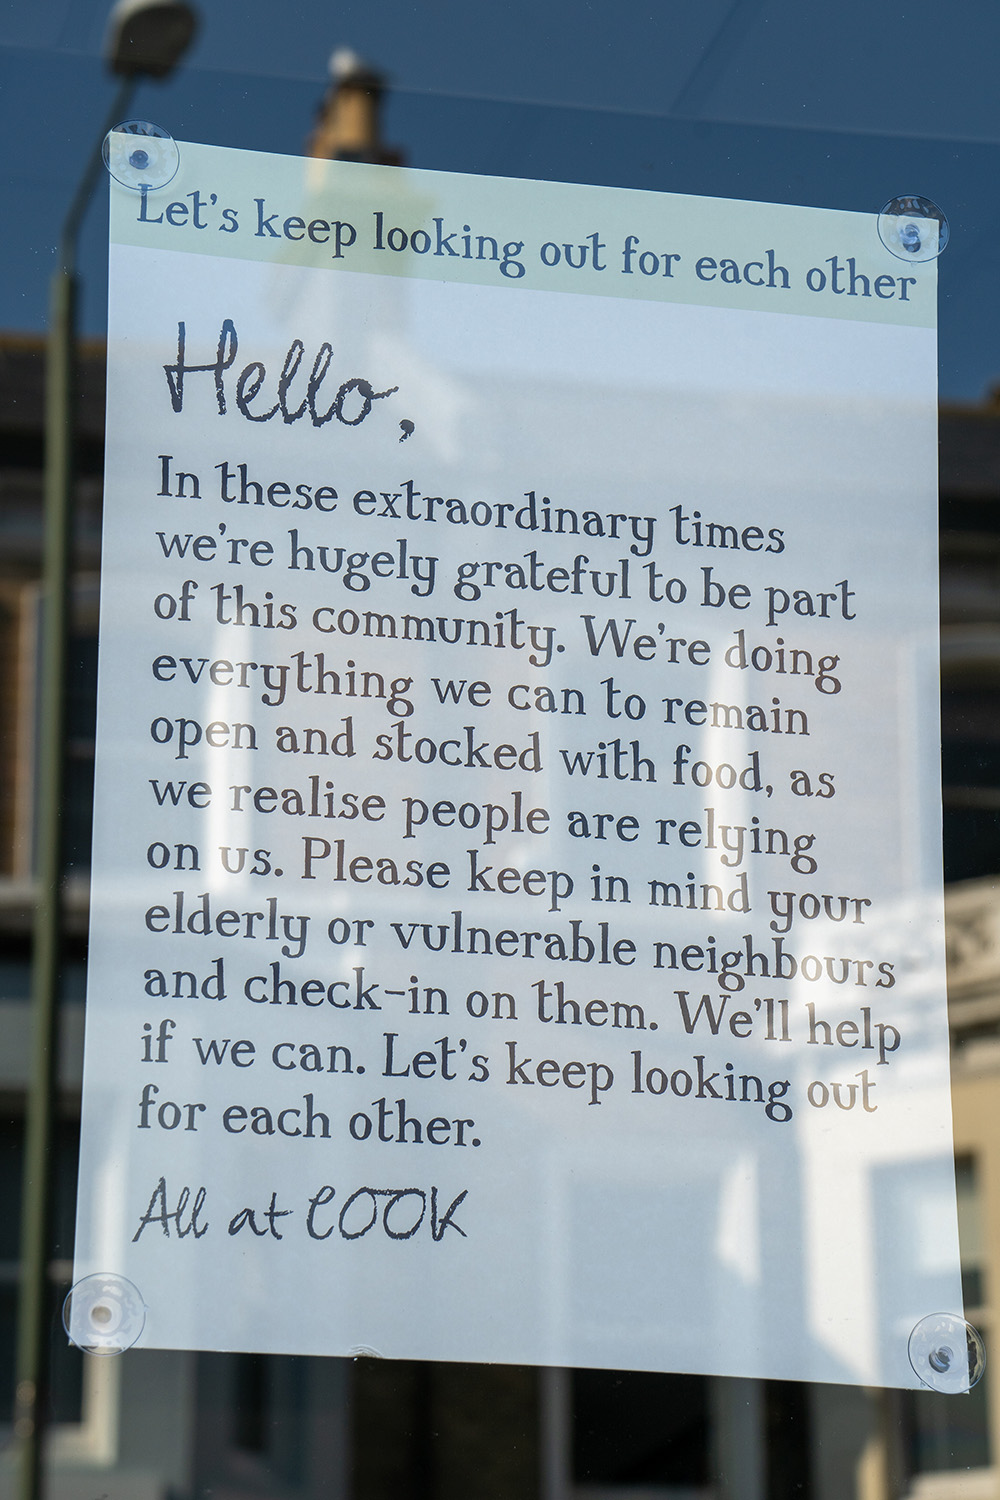 Let's keep looking out for each other
Hello,
In these extraordinary times
we're hugely grateful to be part
of this community. We're doing
everything we can to remain
open and stocked with food, as
we realise people are relying
on us. Please keep in mind your
elderly or vulnerable neighbours
and check-in on them. We'll help
if we can. Let's keep looking out
for each other.
All at COOK